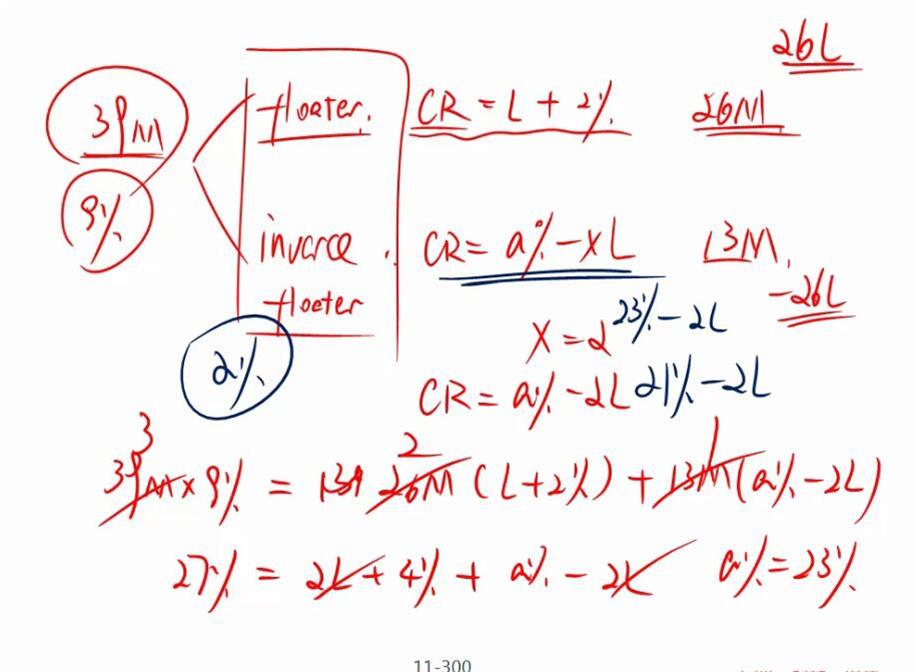 26L
39M floater. CR = L + 2% 26M
9%
inverse floater CR = a% - XL 13M
-26L
X = 2 23% - 2L
2%
CR = a% - 2L 21% - 2L
3 2 1
39M × 9% = 26M (L + 2%) + 13M (a% - 2L)
27% = 2L + 4% + a% - 2L a% = 23%
11-300